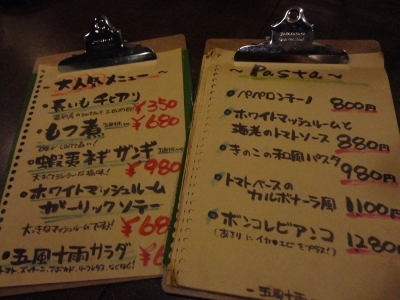 大人気メニュー
・長いもチヂミ
¥350
・もつ煮
¥680
・蝦夷ネギザンギ
¥980
・ホワイトマッシュルーム
ガーリックソテー
大きなマッシュルームです!
¥68
・五風十雨サラダ
~ Pasta ~
・ペペロンチーノ
800円
・ホワイトマッシュルームと
海老のトマトソース
880円
・きのこの和風パスタ
980円
・トマトベースの
カルボナーラ風
1100円
・ボンゴレビアンコ
(あさりにイカ・エビをプラス!)
1280円
五風十雨